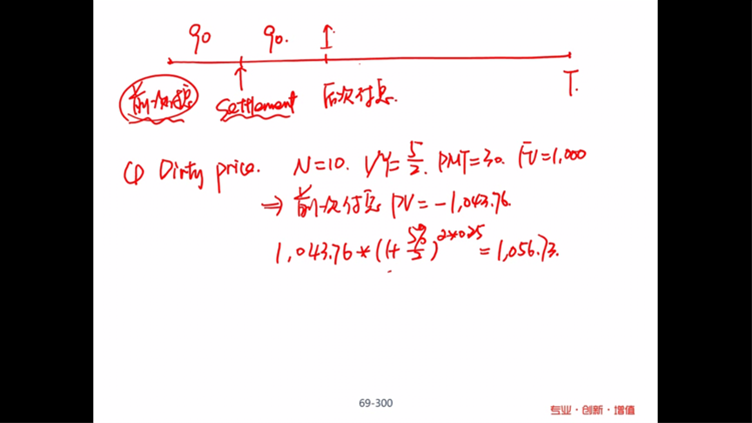 90 90. I
前一次付息 Settlement 后次付息. T.
(1) Dirty price. N=10. I/Y=5/2. PMT=30. FV=1,000
⇒ 前一次付息 PV=-1,043.76.
1,043.76*(1+5%/5)^2*0.25=1,056.73.
69-300
专业·创新·增值